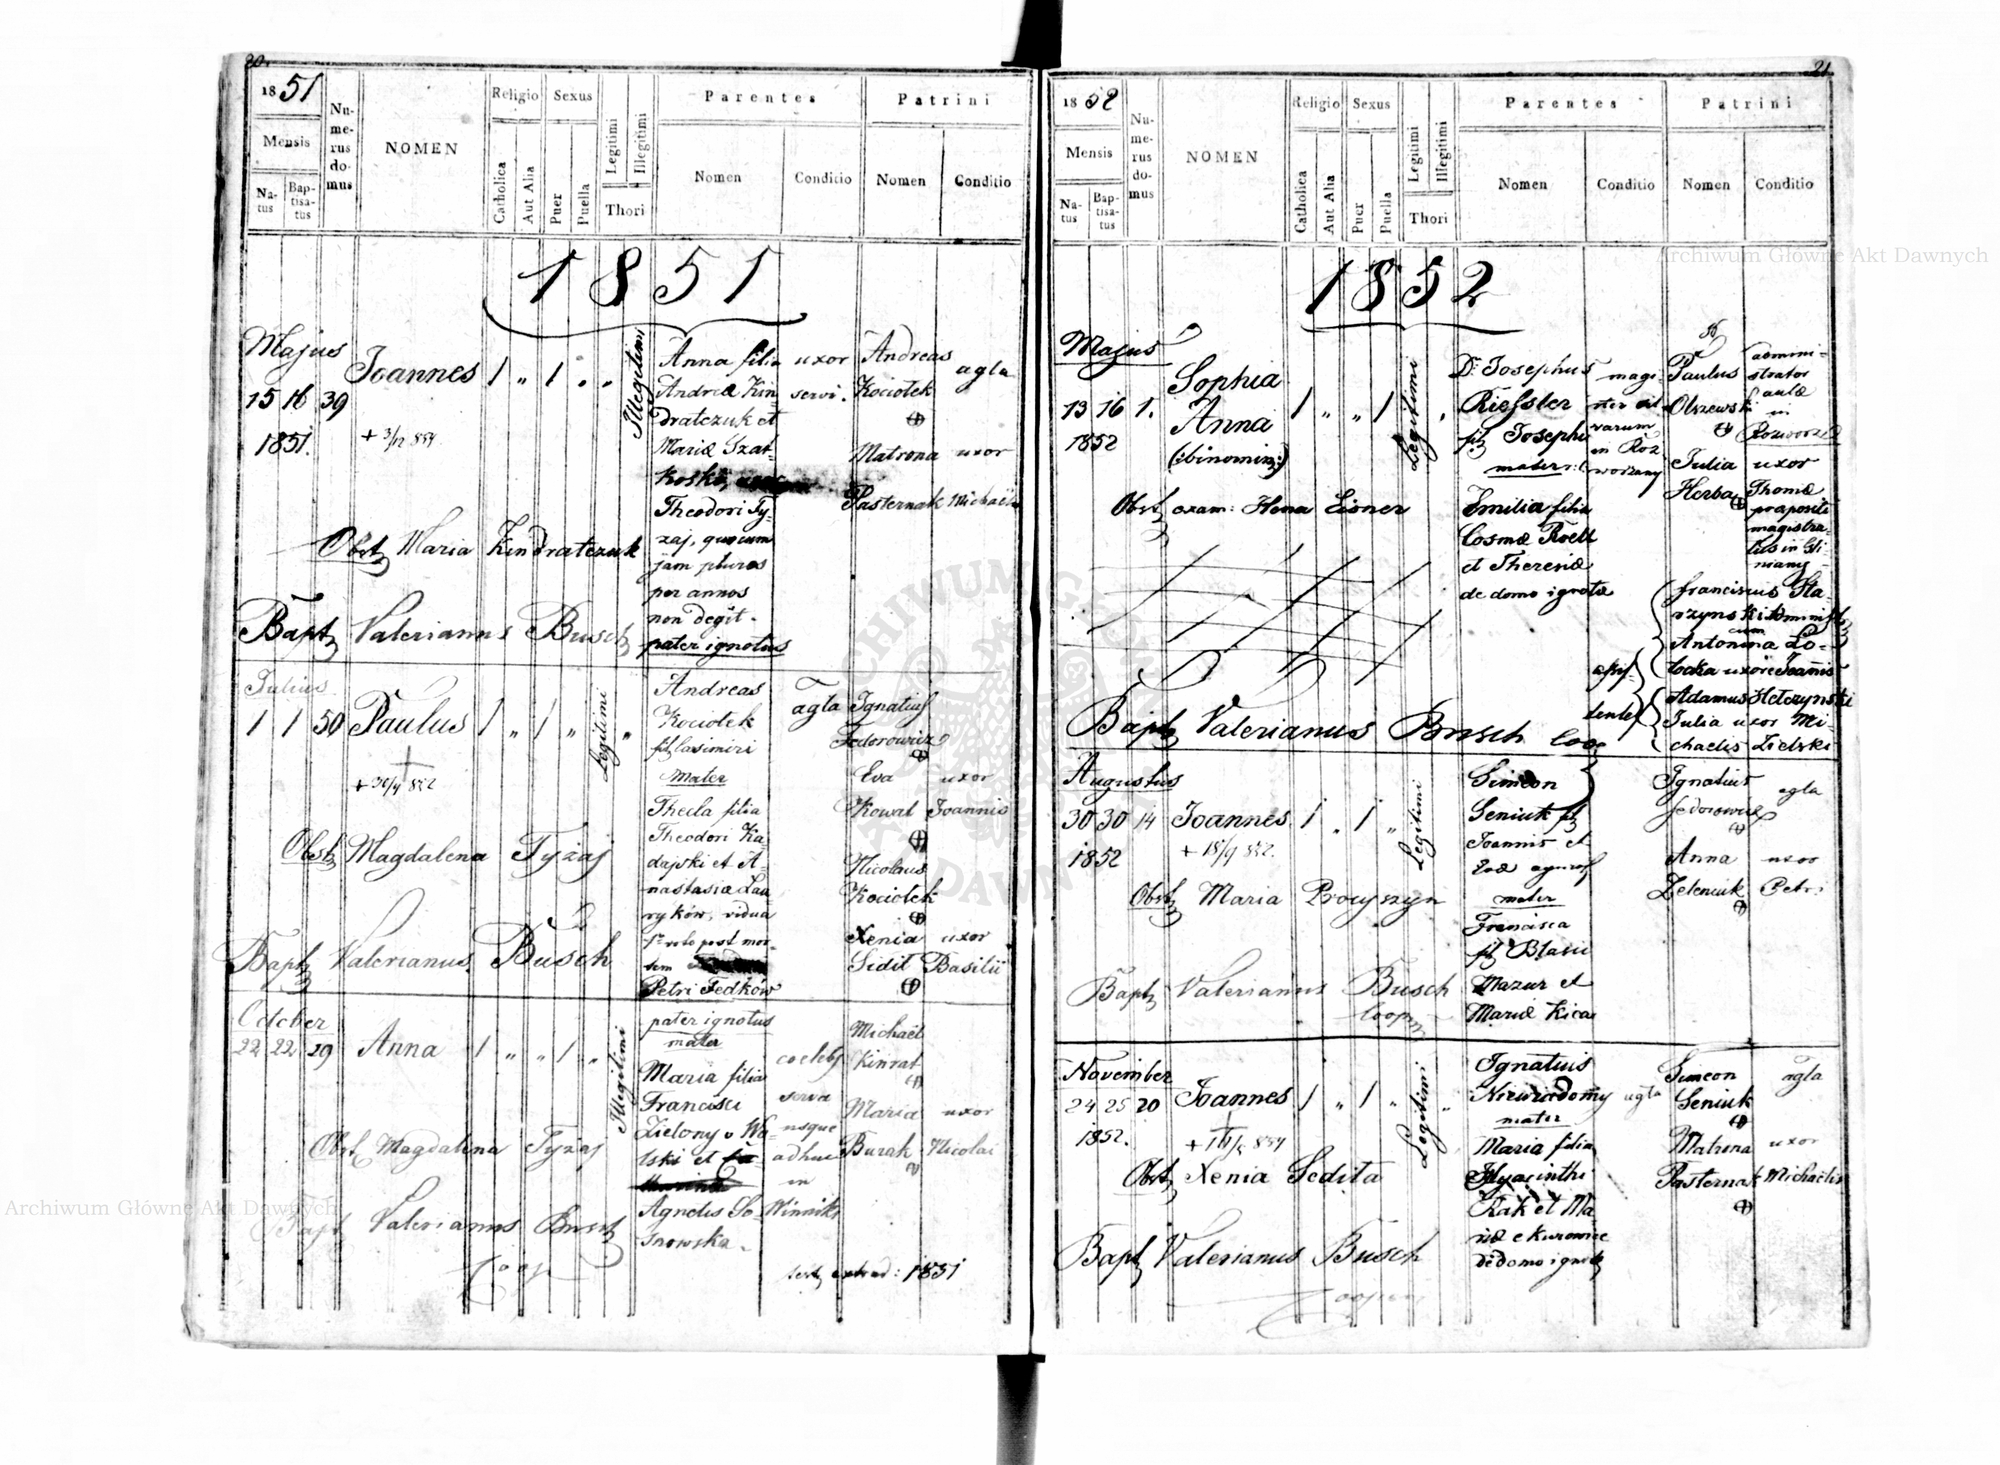 20.
18 51
Mensis
Na-
tus
Bap-
tisa-
tus
Nu-
me-
rus
do-
mus
NOMEN
Religio
Catholica
Aut Alia
Sexus
Puer
Puella
Legitimi
Illegitimi
Thori
Parentes
Nomen
Conditio
Patrini
Nomen
Conditio
1851
Majus
15 16 39
1851.
Joannes 1 " 1 " "
+ 3/12 854
Illegitimi
Anna filia
Andreæ Kin-
dratczuk et
Mariæ Szat-
Theodori Ty-
zaj, quocum
jam plures
per annos
non degit.
pater ignotus
uxor
servi.
Andreas
Kociołek
agla
Matrona uxor
Pasternak Michaëlis
Obst Maria Kindratczuk
Bapt Valerianus Busch
Julius
1 1 50 Paulus 1 " 1 " "
Legitimi
Andreas
Kociołek
fil Casimiri
mater
Thecla filia
Theodori Ka-
dajski et A-
nastasiæ Lau-
ryków, vidua
post mor-
tem
Petri Fedków
agla
Ignatius
Fedorowicz
Eva uxor
Kowal Joannis
Nicolaus
Kociołek
Xenia uxor
Sidit Basilii
Obst Magdalena Tyżaj
Bapt Valerianus Busch
October
22 22 29 Anna 1 " " 1 "
Illegitimi
pater ignotus
mater
Maria filia
Francisci
Zielony v Wo-
lski et
Agnetis So-
snowska.
coelebs
serva
usque
adhuc
in
Winniki
Michaël
Kinrat
Maria uxor
Burak Nicolai
Obst Magdalena Tyżaj
Bapt Valerianus Busch
Coop
extrad: 1851
21.
18 52
Mensis
Na-
tus
Bap-
tisa-
tus
Nu-
me-
rus
do-
mus
NOMEN
Religio
Catholica
Aut Alia
Sexus
Puer
Puella
Legitimi
Illegitimi
Thori
Parentes
Nomen
Conditio
Patrini
Nomen
Conditio
1852
Majus
13 16 1.
1852
Sophia
Anna
(:binomin:)
1 " " 1
Legitimi
Dr Josephus
Riessler
fil Josephi
mater:
Emilia filia
Cosmæ Roell
et Theresiæ
de domo ignotæ
Paulus
Olszewski
admini-
strator
in
Julia uxor
Herba Thomæ
præpositi
magistra-
tus in Gli-
niany
Franciscus Sta-
rzynski
cum
Antonina Lo-
uxore Joannis
Julia uxor Mi-
chaelis Zielski
Obst exam: Eisner
Bapt Valerianus Busch coop
Augustus
30 30 14 Joannes 1 " 1 "
1852
+ 18/9 852.
Legitimi
Simeon
Seniuk fil
Joannis et
Evæ
mater
Francisca
fil Blasii
Mazur et
Mariæ Kica
Ignatius
Fedorowicz
agla
Anna uxor
Zeleniuk Petri
Obst Maria Procyszyn
Bapt Valerianus Busch
Coop
November
24 25 20 Joannes 1 " 1 " "
1852.
Legitimi
Ignatius
Niewiadomy agla
mater
Maria filia
Hyacinthi
Kak et Ma-
riæ e Kurowice
de domo ignotæ
Simeon
Seniuk
agla
Matrona uxor
Pasternak Michaelis
Obst Xenia Sedita
Bapt Valerianus Busch
Cooper
Archiwum Główne Akt Dawnych
Archiwum Główne Akt Dawnych
ARCHIWUM GŁÓWNE AKT DAWNYCH